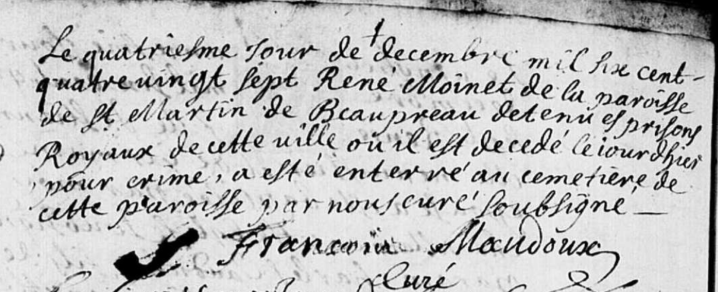 Le quatriesme Jour de decembre mil six cent-
quatre vingt sept René Moinet de la paroisse
de st Martin de Beaupreau detenu es prisons
Royaux de cette ville ou il est decedé le iour dhier
pour crime, a esté enterré au cemetiere de
cette paroisse par nous curé soubsigné _
François Mandoux
Curé